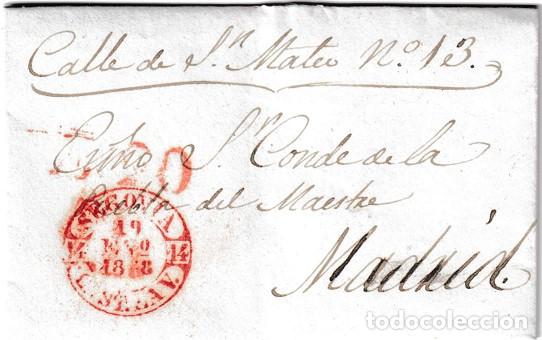 Calle de Sn. Mateo No. 13.
Exmo Sr. Conde de la
Puebla del Maestre
Madrid.
SEGOVIA
19
14 14
C. LA V.
todocoleccion